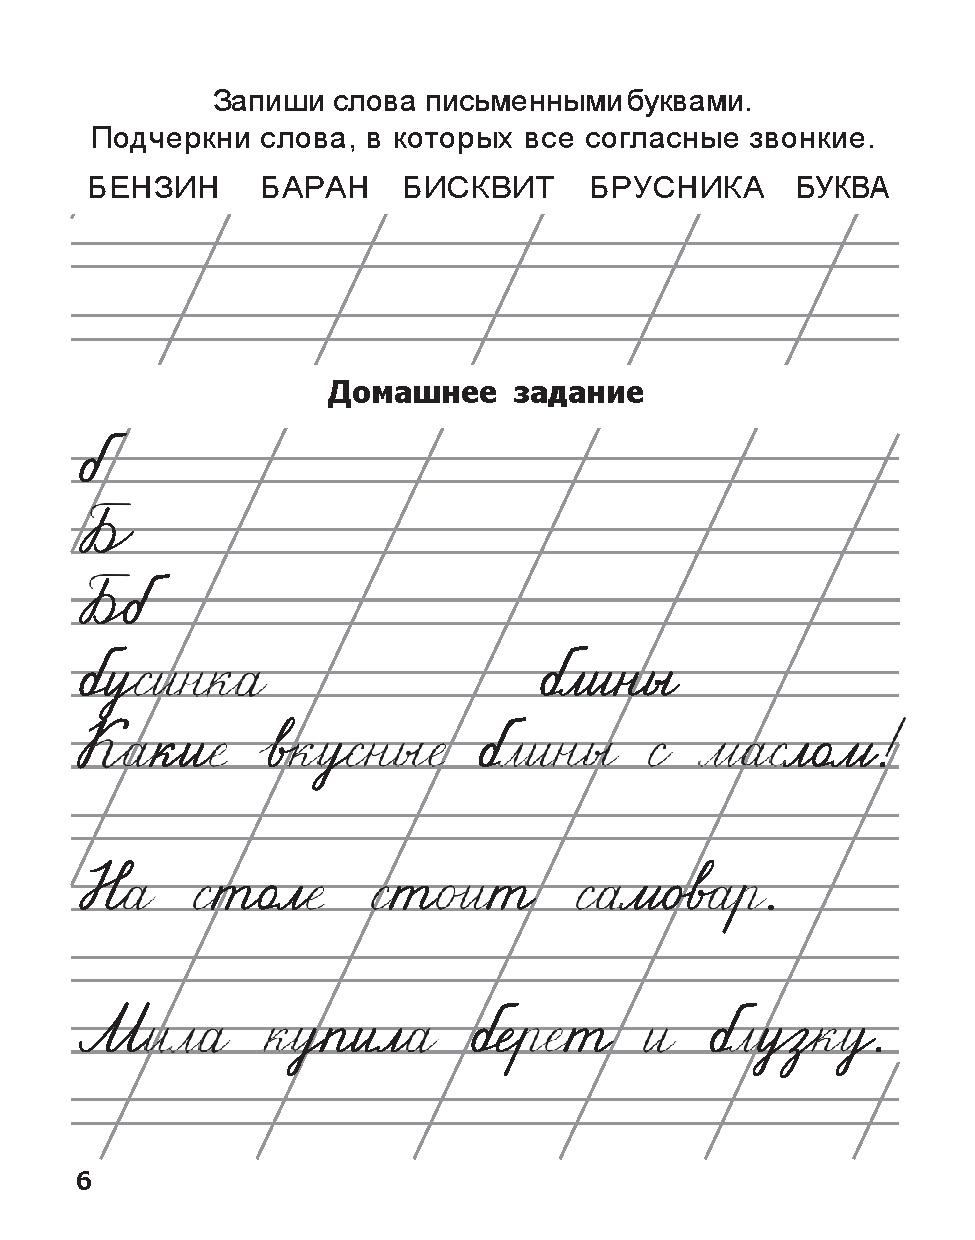 Запиши слова письменными буквами.
Подчеркни слова, в которых все согласные звонкие.
БЕНЗИН БАРАН БИСКВИТ БРУСНИКА БУКВА
Домашнее задание
б
Б
Бб
бусинка блины
Какие вкусные блины с маслом!
На столе стоит самовар.
Мила купила берет и блузку.
6